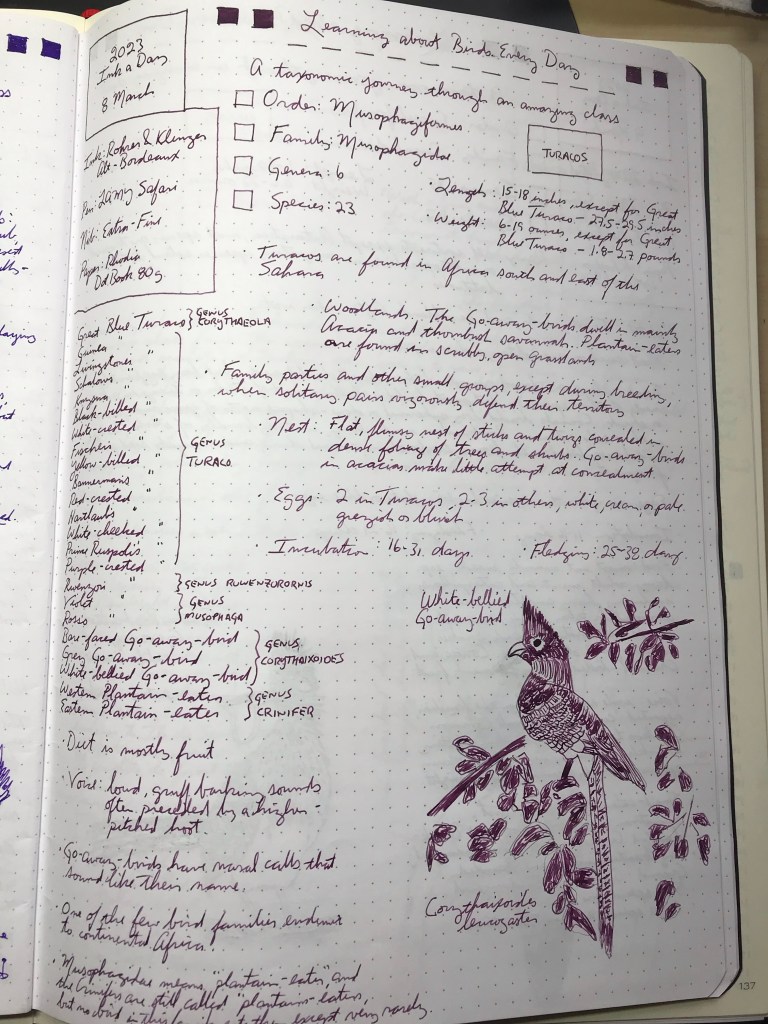 Learning about Birds Every Day
A taxonomic journey through an amazing class
2023
Ink a Day
8 March
Ink: Rohrer & Klingner
Alt-Bordeaux
Pen: Lamy Safari
Nib: Extra-Fine
Paper: Rhodia
Dot Book 80g.
Order: Musophagiformes
Family: Musophagidae
Genera: 6
Species: 23
TURACOS
· Length: 15-18 inches, except for Great
Blue Turaco - 27.5-29.5 inches
· Weight: 6-19 ounces, except for Great
Blue Turaco - 1.8-2.7 pounds
· Turacos are found in Africa south and east of the
Sahara
· Woodlands. The Go-away-birds dwell in mainly
Acacia and thornbush savannah. Plantain-eaters
are found in scrubby, open grasslands
· Family parties and other small groups, except during breeding,
when solitary pairs vigorously defend their territory
· Nest: Flat, flimsy nest of sticks and twigs concealed in
dense foliage of trees and shrubs. Go-away-birds
in acacias make little attempt at concealment.
· Eggs: 2 in Turacos, 2-3 in others, white, cream, or pale
greyish or bluish
· Incubation: 16-31 days
· Fledging: 25-38 days
Great Blue Turaco } GENUS
CORYTHAEOLA
Guinea "
Livingstones "
Schalows "
Knysna "
Black-billed "
White-crested "
Fischers "
Yellow-billed "
Bannermans "
Red-crested "
Hartlaubs "
White-cheeked "
Prince Ruspolis "
Purple-crested "
GENUS
TURACO
Rwenzori " } GENUS RUWENZORORNIS
Violet "
Ross's "
GENUS
MUSOPHAGA
Bare-faced Go-away-bird
Grey Go-away-bird
White-bellied Go-away-bird
GENUS
CORYTHAIXOIDES
Western Plantain-eater
Eastern Plantain-eater
GENUS
CRINIFER
· Diet is mostly fruit
· Voice: loud, gruff barking sounds
often preceded by a higher-
pitched hoot.
· Go-away-birds have nasal calls that
sound like their name.
· One of the few bird families endemic
to continental Africa.
· Musophagidae means, "plantain-eater", and
the Crinifers are still called "plantain-eaters,
but no bird in this except very rarely.
White-bellied
Go-away-bird
Corythaixoides
leucogaster
137